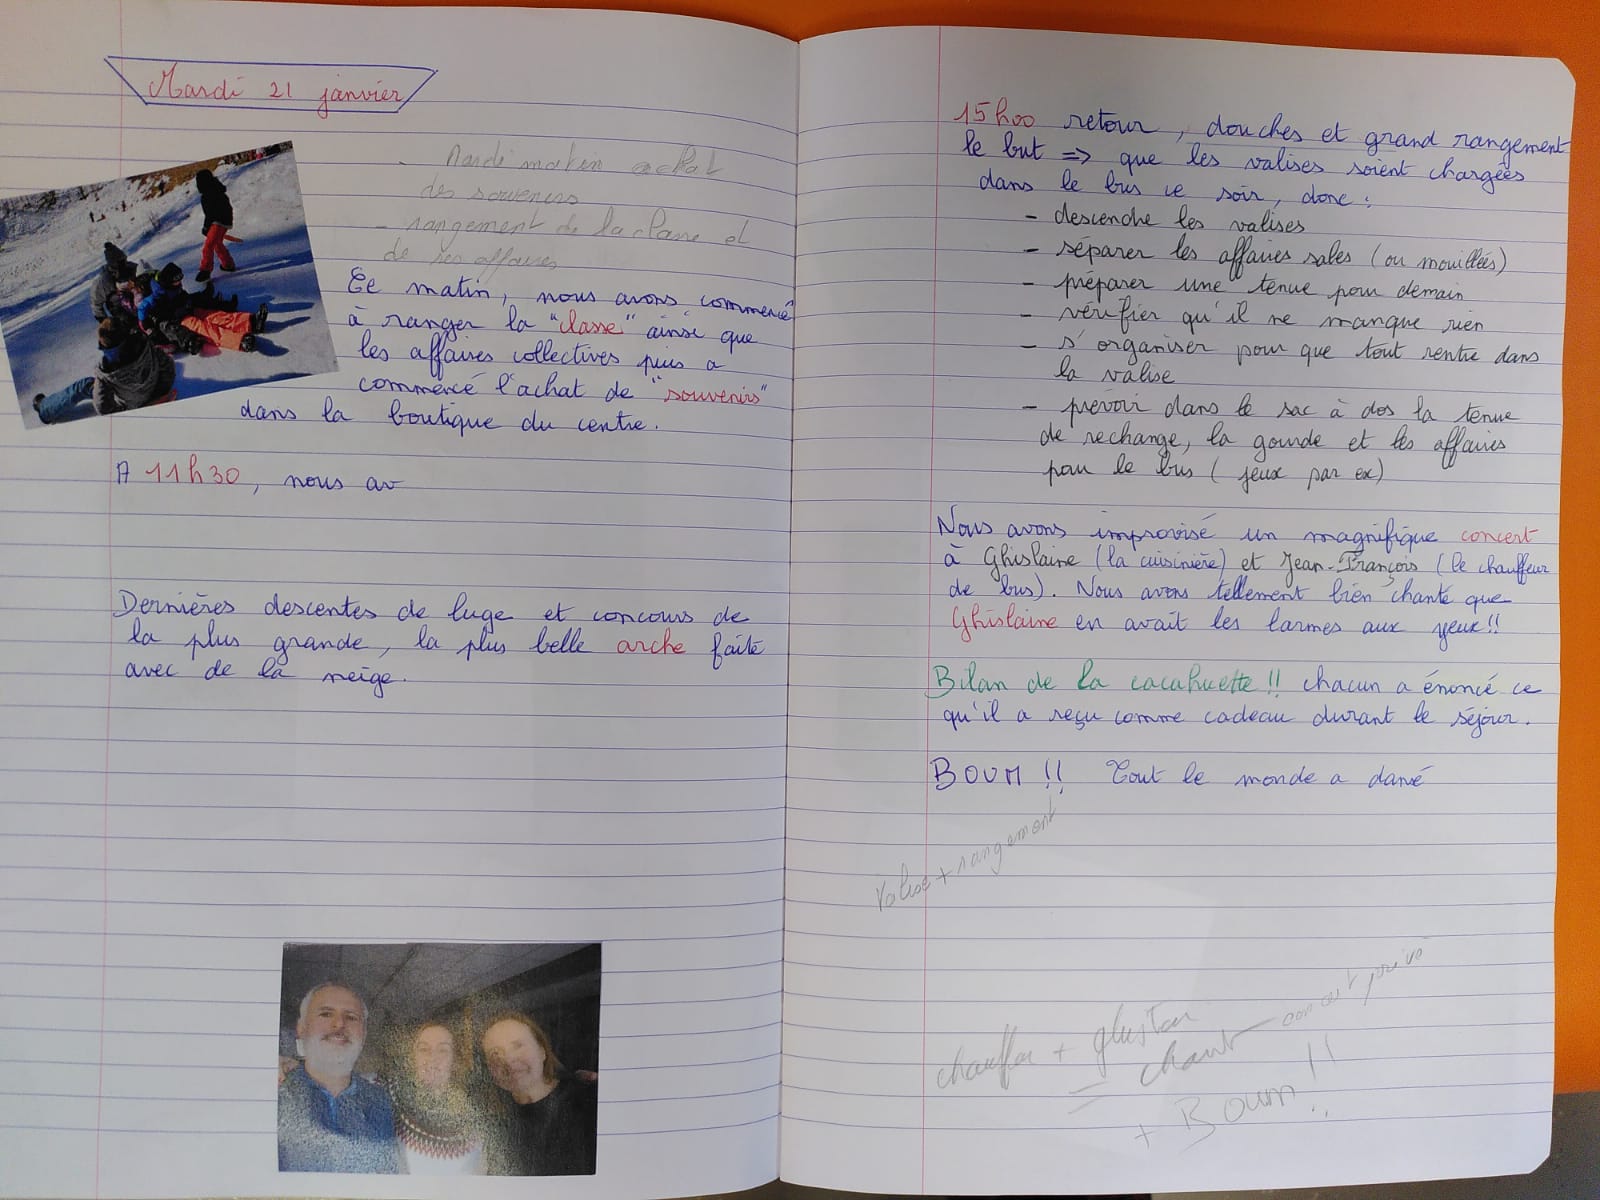 Mardi 21 janvier
- Mardi matin achat
des souvenirs
- rangement de la classe et
de ses affaires
Ce matin, nous avons commencé
à ranger la "classe" ainsi que
les affaires collectives puis a
commencé l'achat de "souvenirs"
dans la boutique du centre.
A 11h30, nous av
Dernières descentes de luge et concours de
la plus grande, la plus belle arche faite
avec de la neige.
15h00 retour, douches et grand rangement
le but => que les valises soient chargées
dans le bus ce soir, donc :
- descendre les valises
- séparer les affaires sales (ou mouillées)
- préparer une tenue pour demain
- vérifier qu'il ne manque rien
- s'organiser pour que tout rentre dans
la valise
- prévoir dans le sac à dos la tenue
de rechange, la gourde et les affaires
pour le bus (jeux par ex)
Nous avons improvisé un magnifique concert
à Ghislaine (la cuisinière) et Jean-François (le chauffeur
de bus). Nous avons tellement bien chanté que
Ghislaine en avait les larmes aux yeux!!
Bilan de la cacahuette!! chacun a énoncé ce
qu'il a reçu comme cadeau durant le séjour.
BOUM!! Tout le monde a dansé
Valise + rangement
+
= chant concert privé
+ Boum!!